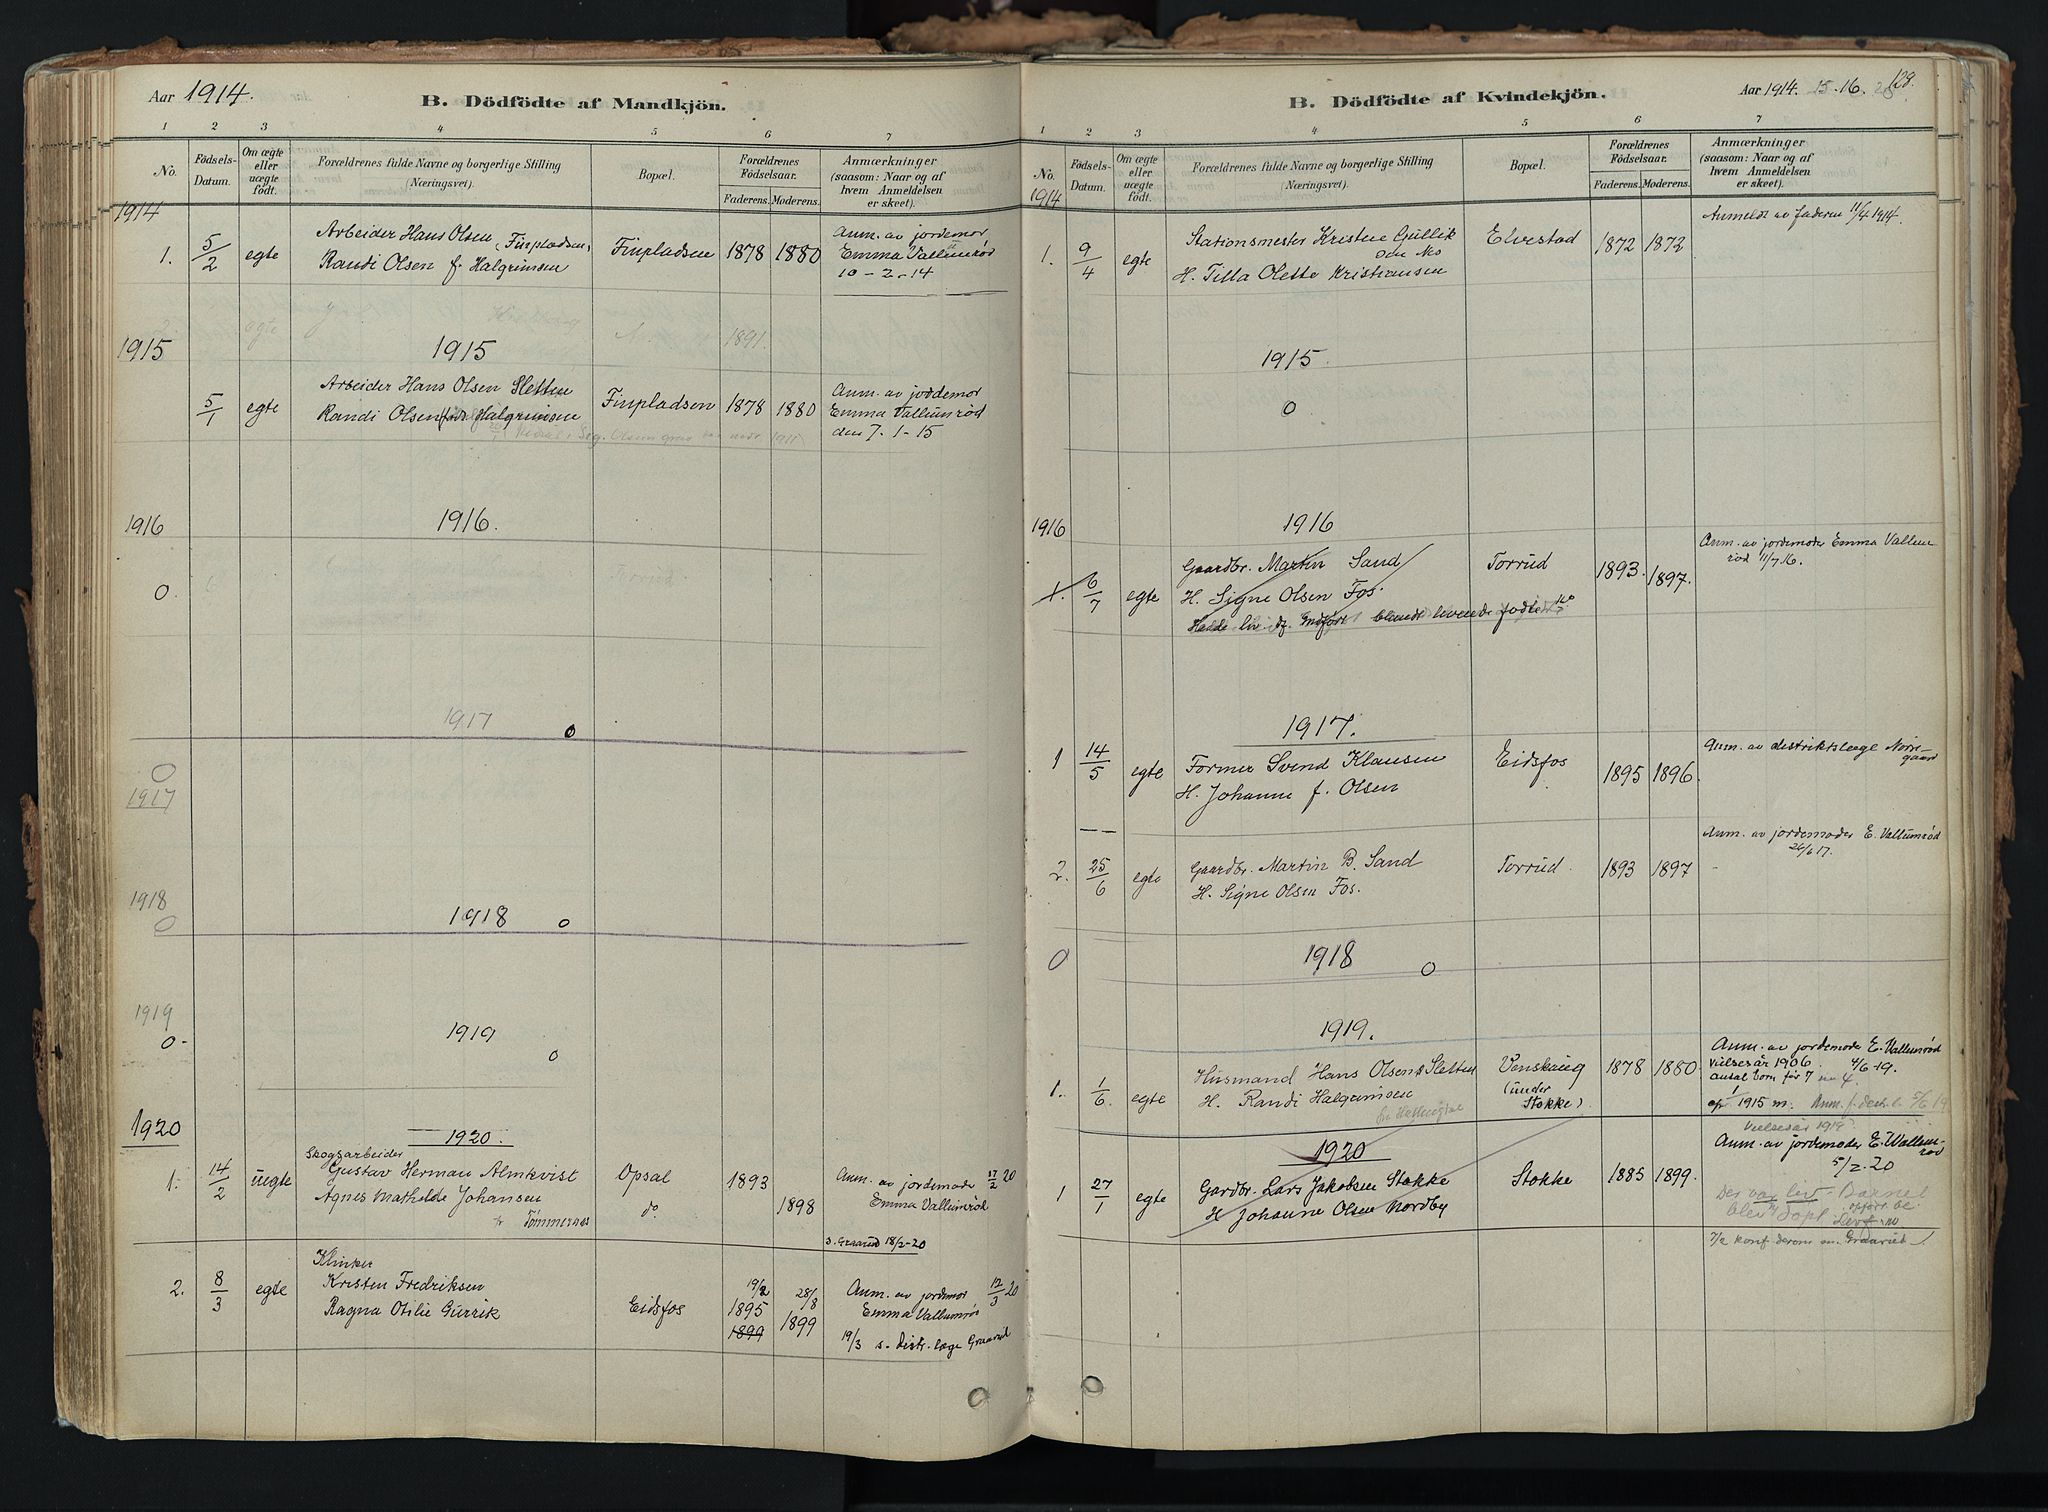 Aar 1914.
B. Dödfödte af Mandkjön.
1 2 3 4 5 6 7
No.
Födsels-Datum.
Om ægte eller uægte födt.
Forældrenes fulde Navne og borgerlige Stilling
(Næringsvei).
Bopæl.
Forældrenes Födselsaar.
Faderens. Moderens.
Anmærkninger
(saasom: Naar og af
hvem Anmeldelsen
er skeet).
1914
1. 5/2 egte
Arbeider Hans Olsen (Finpladsen)
Randi Olsen f. Halgrimsen
Finpladsen 1878 1880
Anm. av jordemor
Emma Vallumrød
10-2-14
egte 1891.
1915
1915
5/1 egte
Arbeider Hans Olsen Sletten
Randi Olsen Halgrimsen
Finpladsen 1878 1880
Anm. av joddemor
Emma Vallumrød
den 7.1-15
1916
1916.
0.
1917 0
0
1917
1918
0
1918 0
1919
0-
1919
0
1920
1920.
1. 14/2 uegte
Skogsarbeider
Gustav Herman Almkvist
Agnes Mathilde Johansen
Tømmernes
Opsal
do
1893
1898
Anm. av jordemoder 17/2 20
Emma Vallumrød
s. Graarud 18/2-20
2. 8/3 egte
Klinker
Kristen Fredriksen
Ragna Otilie Gurrik
Eidsfos
19/2
1895
1899
28/8
1899
Anm. av jordemor 12/3 20
Emma Vallumrød
19/3 s. distr. læge Graarud
Aar 1914. 15-16. 20
129.
B. Dödfödte af Kvindekjön.
1 2 3 4 5 6 7
No.
Födsels-Datum.
Om ægte eller uægte födt.
Forældrenes fulde Navne og borgerlige Stilling
(Næringsvei).
Bopæl.
Forældrenes Födselsaar.
Faderens. Moderens.
Anmærkninger
(saasom: Naar og af
hvem Anmeldelsen
er skeet).
1914
1. 9/4 egte
Stationsmester Kristen Gullik
H. Tilla Olette Kristiansen
Elvestad 1872 1872
Anmeldt av faderen 11/4 1914.
1915.
0
1916
1916
1. 6/7 egte
Gaardbr. Martin Sand
H. Signe Olsen Fos.
Hadde liv. df. Indført blandt levende fødte
Torrud 1893. 1897.
Anm. av jordemoder Emma Vallum-
rød 11/7 16.
1917.
1 14/5 egte
Former Svend Klausen
H. Johanne f. Olsen
Eidsfos 1895 1896
Anm. av distriktslæge Nørre-
gaard
2. 25/6 egte
Gaardbr. Martin B. Sand
H. Signe Olsen Fos.
Torrud. 1893 1897
Anm. av jordemoder E. Vallumrød
26/6 17.
0
1918
0
1919.
1. 1/6 egte
Husmand Hans Olsen Sletten
H. Randi Halgrimsen
Venskaug
(under
Stokke)
1878 1880
Anm. av jordemoder E. Vallumrød
vielsesår 1906. 4/6-19.
antal born før 7
1915 m. Anm. f. 5/6 19
1920
Vielsesår 1918
1 27/1 egte
Gardbr. Lars Jakobsen Stokke
H Johanne Olsen Nordby
Stokke 1885 1899.
Anm. av jordemoder E. Vallum-
rød
5/2-20
Der var liv - Barnet
blev døpt
7/2 konf derom m. Graarud